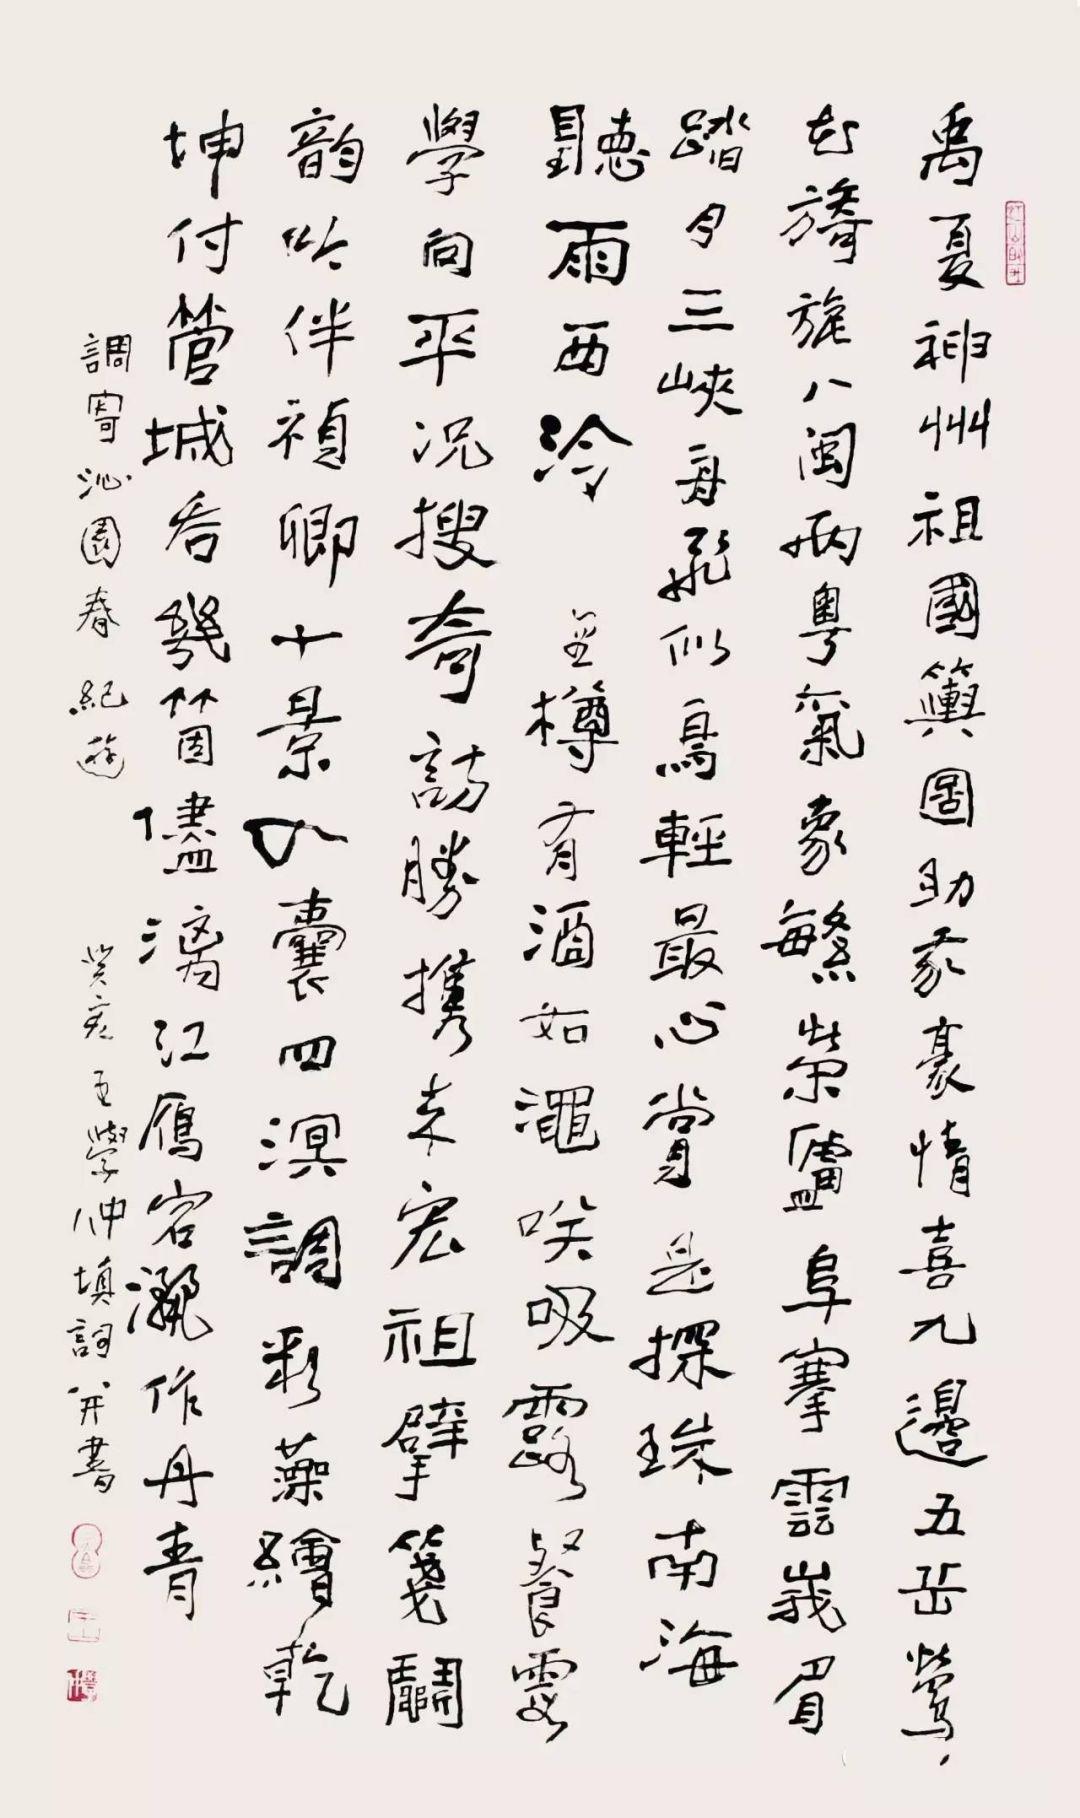 禹夏神州祖國輿圖助我豪情喜九邊五岳鶯
花旖旎八閩兩粵氣象繁榮廬阜搴雲峨眉
踏月三峽舟飛似鳥輕最心賞是探珠南海
聽雨西泠 金樽有酒如澠唉吸露餐霞
學向平況搜奇訪勝攜来宏祖擘箋鬭
韵吟伴禎卿十景入囊四溟調彩藻繪乾
坤付管城吞幾箇儘漓江雁宕瀨作丹青
調寄沁園春 紀遊
癸亥 王學仲填詞并書